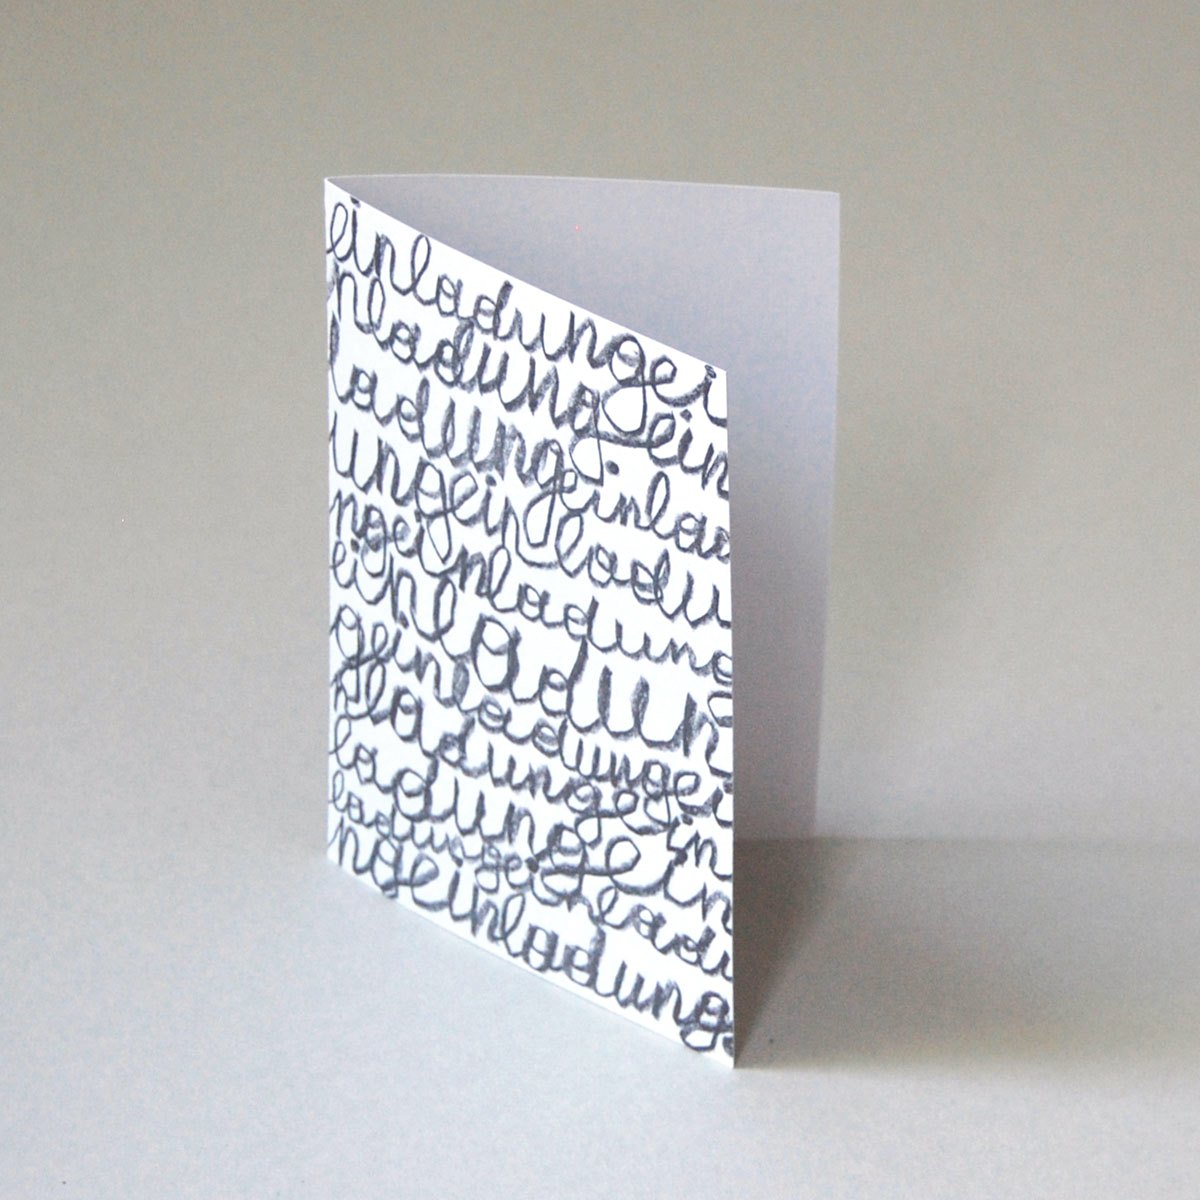 einladungei
nladungein
ladungeinlad
ungeinladu
ngeinladung
einladun
geinladungei
nladungein
ladungein
ladungeinladu
ngeinladung